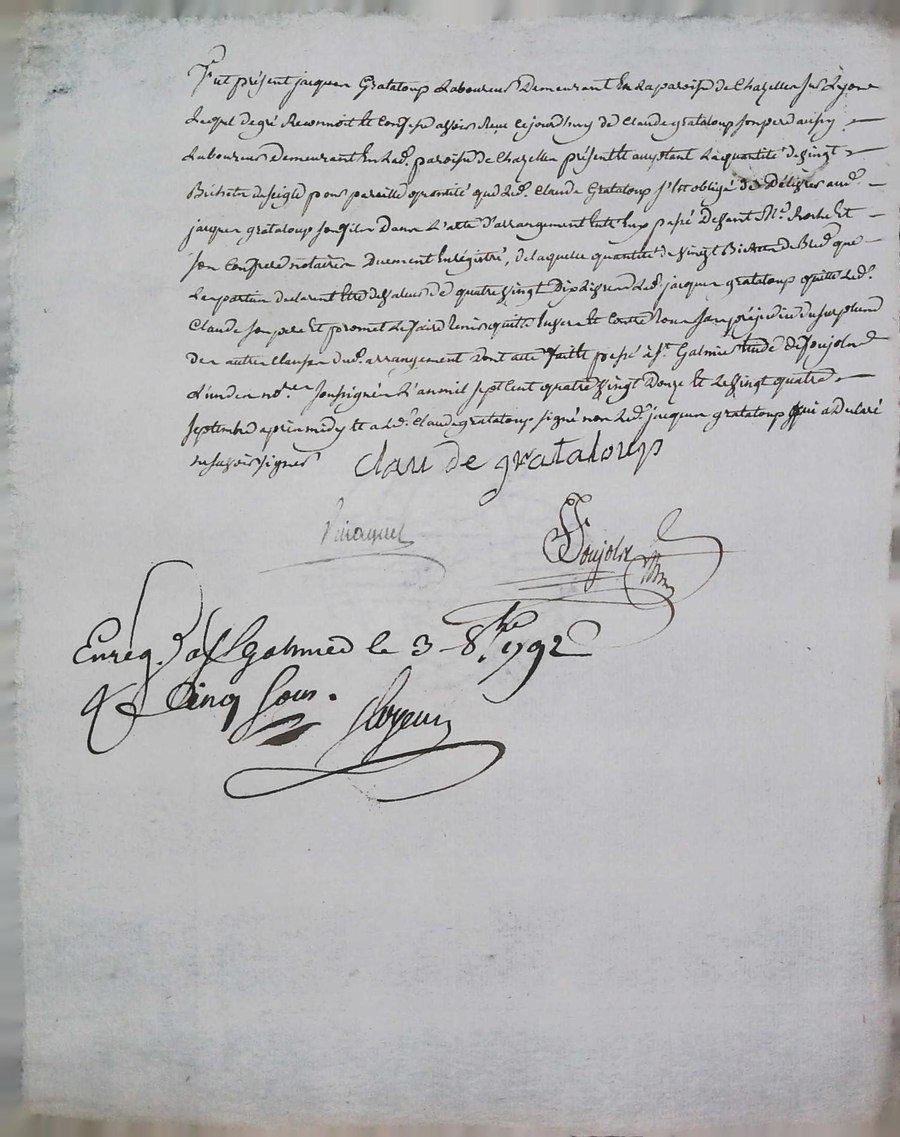 Fut présent jacques Grataloup Laboureur Demeurant En La paroisse de Chazelles Sur Lyon
Lequel de gré Reconnoit et Confesse avoir Reçu Cejourd'huy de Claude grataloup Son pere aussy
Laboureur demeurant En Lad. paroisse de Chazelles présent et acceptant La quantité de vingt
Bichets de seigle pour pareille quantité que Led. Claude Grataloup s'est obligé de Délivrer aud.
jacques grataloup Son fils Dans L'acte d'arrangement Entr'Eux passé Devant Me. Roche Et
Son Confrere notaires Duement Enrégistré, de laquelle quantité de vingt Bichets de Bled que
Les parties declarent être de valeur de quatre vingt Dix Livres Led. jacques grataloup quitte Led.
Claude Son pere Et promet Le faire tenir quitte Envers et Contre tous Sans préjudice du surplus
des autres Clauses dud. arrangement dont acte fait et passé à St. Galmier Etude de Soujolne
L'un des no.res Soussigné L'an mil Sept Cent quatre vingt Douze Et Le vingt quatre
Septembre après midy et a Led. Claude grataloup signé non Led. jacques grataloup qui a Déclaré
ne savoir signer
Claude grataloup
Enreg. a St Galmier le 3 8.bre 1792
Cinq Sous.